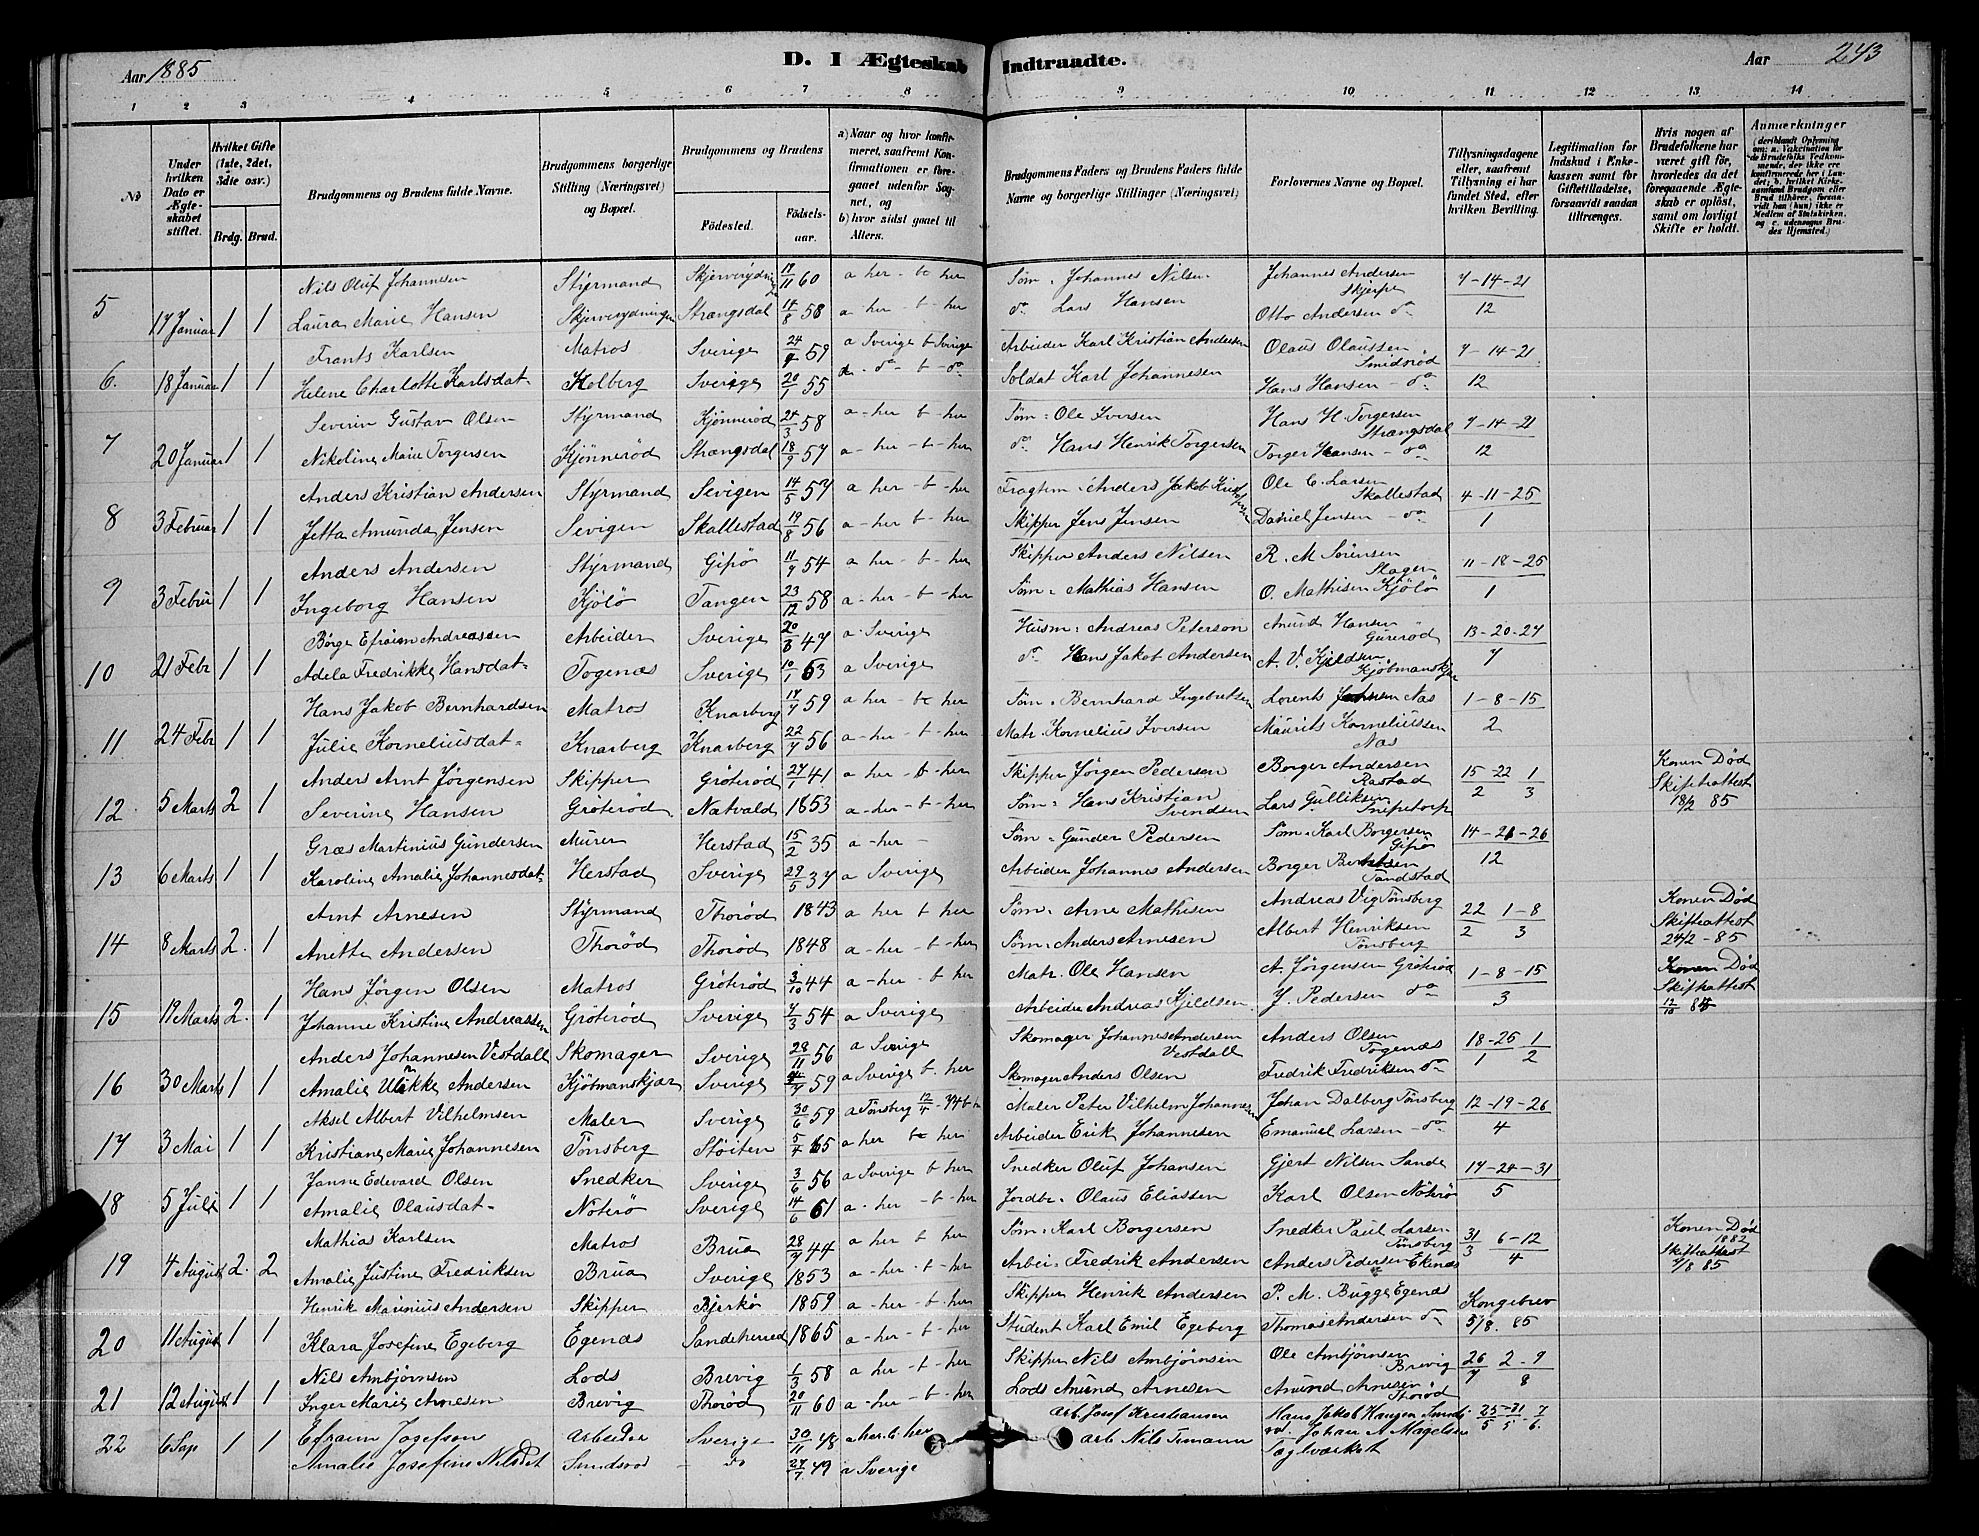 Aar 1885
D. I Ægteskab Indtraadte.
Aar
243
1 2 3 4 5 6 7 8 9 10 11 12 13 14
No
Under hvilken Dato er Ægteskabet stiftet.
Hvilket Gifte (1ste, 2det, 3die osv.)
Brdg. Brud.
Brudgommens og Brudens fulde Navne.
Brudgommens borgerlige Stilling (Næringsvei) og Bopæl.
Brudgommens og Brudens
Födested.
Födselsaar.
a) Naar og hvor konfirmeret, saafremt Konfirmationen er foregaaet udenfor Sognet, og
b) hvor sidst gaaet til Alters.
Brudgommens Faders og Brudens Faders fulde Navne og borgerlige Stillinger (Næringsvei)
Forlovernes Navne og Bopæl.
Tillysningsdagene eller, saafremt Tillysning ei har fundet Sted, efter hvilken Bevilling.
Legitimation for Indskud i Enkekassen samt for Giftetilladelse, forsaavidt saadan tiltrænges.
Hvis nogen af Brudefolkene har været gift för, hvorledes da det foregaaende Ægteskab er oplöst, samt om lovligt Skifte er holdt.
Anmærkninger
(deriblandt Oplysning om: a. Vakcination for de Brudefolks Vedkommende, der ikke ere konfirmerede her i Landet; b. hvilket Kirkesamfund Brudgom eller Brud tilhörer, forsaavidt han (hun) ikke er Medlem af Statskirken, og c. udensogns Brudes Hjemsted.)
Nils Oluf Johannesen Styrmand 17/11 60 a her - b her Söm. Johannes Nilsen Johannes Andersen Skjerpe 7-14-21
5 17 Januar 1 1 Laura Marie Hansen Strængsdal 14/8 58 a her - b - her do Lars Hansen Otto Andersen do 12
Frants Karlsen Matros Sverige 24/9 59 a Sverige b Sverige Arbeider Karl Kristian Andersen Olaus Olaussen Smidsröd 7-14-21
6. 18 Januar 1 1 Helene Charlotte Karlsdat- Holberg Sverige 20/1 55 do - b - do Soldat Karl Johannesen Hans Hansen - do 12
Severin Gustav Olsen Styrmand Kjönneröd 24/3 58 a - her b - her Söm: Ole Iversen Hans H. Torgersen Strængsdal 7-14-21
7 20 Januar 1 1 Nikoline Marie Torgersen Kjönneröd Strængsdal 18/9 57 a - her - b - her do Hans Henrik Torgersen Torger Hansen - do 12
Anders Kristian Andersen Styrmand Sevigen 14/5 57 a - her - b - her Fragtem. Anders Jakob Ole C. Larsen Skallestad 4-11-25
8 3 Februar 1 1 Jetta Amunda Jensen Sevigen Skallestad 19/8 56 a - her b - her Skipper Jens Jensen Daniel Jensen - do 1
Anders Andersen Styrmand Gipö 11/9 54 a her - b - her Skipper Anders Nilsen R. M. Sörensen Slagen 11-18-25
9 3 Febru 1 1 Ingeborg Hansen Kjölö Tangen 23/12 58 a - her - b - her Söm. Mathias Hansen O. Mathisen Kjölö 1
Börge Efraim Andreassen Arbeider Sverige 20/3 47 a Sverige Husm: Andreas Peterson Amund Hansen 13-20-27
10 21 Febr 1 1 Adela Fredrikke Hansdat- Togenæs Sverige 10/1 63 a Sverige do Hans Jakob Andersen A. V. Kjeldsen Kjöbmanskjær 7
Hans Jakob Bernhardsen Matros Knarberg 17/7 59 a her - b her Söm. Bernhard Ingebretsen Lorents Næs 1-8-15
11 24 Febr 1 1 Julie Korneliusdat- Knarberg Knarberg 22/7 56 a - her - b - her Matr. Kornelius Iversen Maurits Korneliussen Næs 2
Anders Arnt Jörgensen Skipper Gröteröd 27/1 41 a - her - b - her Skipper Jörgen Pedersen Borger Andersen Rastad 15 22/2 1/3 Konen Död Skifteattest 18/2 85
12. 5 Marts 2 1 Severine Hansen Gröteröd Natvald 1853 a - her - b - her Söm: Hans Kristian Svendsen Lars Gulliksen Snipetorp
Græs Martinius Gundersen Murer Herstad 15/2 35 a - her - Söm. Gunder Pedersen Söm. Karl Borgersen Gipö 14-21-26
13 6 Marts 1 1 Karoline Amalie Johannesdat- Herstad Sverige 29/5 37 a Sverige Arbeider Johannes Andersen Borger Tandstad 12
Arnt Arnesen Styrmand Thoröd 1843 a her b her Söm. Arne Mathisen Andreas Vig Tönsberg 22/2 1-8/3 Konen Död Skifteattest 24/2 - 85
14 8 Marts 2. 1 Anette Andersen Thoröd Thoröd 1848 a - her - b - her Söm. Anders Arnesen Albert Henriksen Tönsberg
Hans Jörgen Olsen Matros Gröteröd 3/10 44 a - her - b her Matr. Ole Hansen A. Jörgensen Gröteröd 1-8-15 Konen Död Skifteattest
15 19 Marts 2. 1 Johanne Kristine Andreassen Gröteröd Sverige 7/3 54 a Sverige Arbeider Andreas Kjeldsen J. Pedersen do 3
Anders Johannesen Vestdall Skomager Sverige 28/11 56 a Sverige Skomager Johannes Andersen Vestdall Anders Olsen Togenæs 18-25/1 1/2
16 30 Marts 1 1 Amalie Ulrikke Andersen Kjöbmanskjær Sverige 59 a Sverige b. her Skomager Anders Olsen Fredrik Fredriksen do
Aksel Albert Vilhelmsen Maler Sverige 30/6 59 a Tönsberg 12/4 Maler Peter Vilhelm Johannesen Johan Dalberg Tönsberg 12-19-26
17 3 Mai 1 1 Kristiane Marie Johannesen Tönsberg Stöiten 5/4 65 a her b her Arbeider Erik Johannesen Emanuel Larsen - do 4
Janne Edevard Olsen Snedker Sverige 3/6 56 a Sverige b her Snedker Oluf Johansen Gjert Nilsen Sande 17-24-31
18 5 Juli 1 1 Amalie Olausdat- Nöterö Sverige 14/6 61 a - her - b - her Jordbr. Olaus Eliassen Karl Olsen Nöterö 5
Mathias Karlsen Matros Brua 28/9 44 a her b her Söm. Karl Borgersen Snedker Paul Larsen Tönsberg 31/3 6-12/4 Konen Död 1882 Skifteattest 4/8 85
19 4 August 2. 2 Amalie Justine Fredriksen Brua Sverige 1853 a - her. b - her Arbei - Fredrik Andersen Anders Pedersen Ekenæs
Henrik Marinius Andersen Skipper Bjerkö 1859 a - her - b - her Skipper Henrik Andersen P. M. Bugge Egenæs Kongebrev
20 11 August 1 1 Klara Josefine Egeberg Egenæs Sandeherred 1865 a - her - b - her Student Karl Emil Egeberg Thomas Andersen do 5/8. 85
Nils Ambjörnsen Lods Brevig 1/3 58 a her - b - her Skipper Nils Ambjörnsen Ole Ambjörnsen Brevig 26/7 2-9/8
21 12 August 1 1 Inger Marie Arnesen Brevig Thoröd 20/11 60 a - her - b - her Lods Amund Arnesen Amund Arnesen Thoröd
22 6 Sep 1 1 Efraim Josefson arbeider Sverige 30/11 48 a her. b her arb. Josef Kristiansen Hans Jakob Hansen 25/5-31/5. 7/6
Amalie Josefine Nilsdat Smidsröd do 27/7 49 a Sverige arb Nils Timann Johan A Magelsen Taglværket